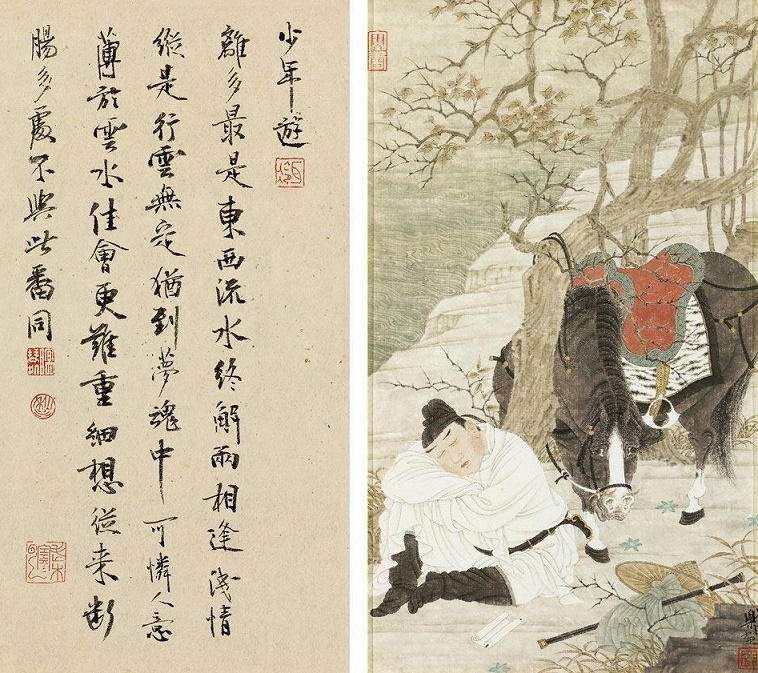 少年遊
離多最是東西流水終解兩相逢淺情
縱是行雲無定猶到夢魂中可憐人意
薄於雲水佳會更難重細想從来断
腸多處不與此番同